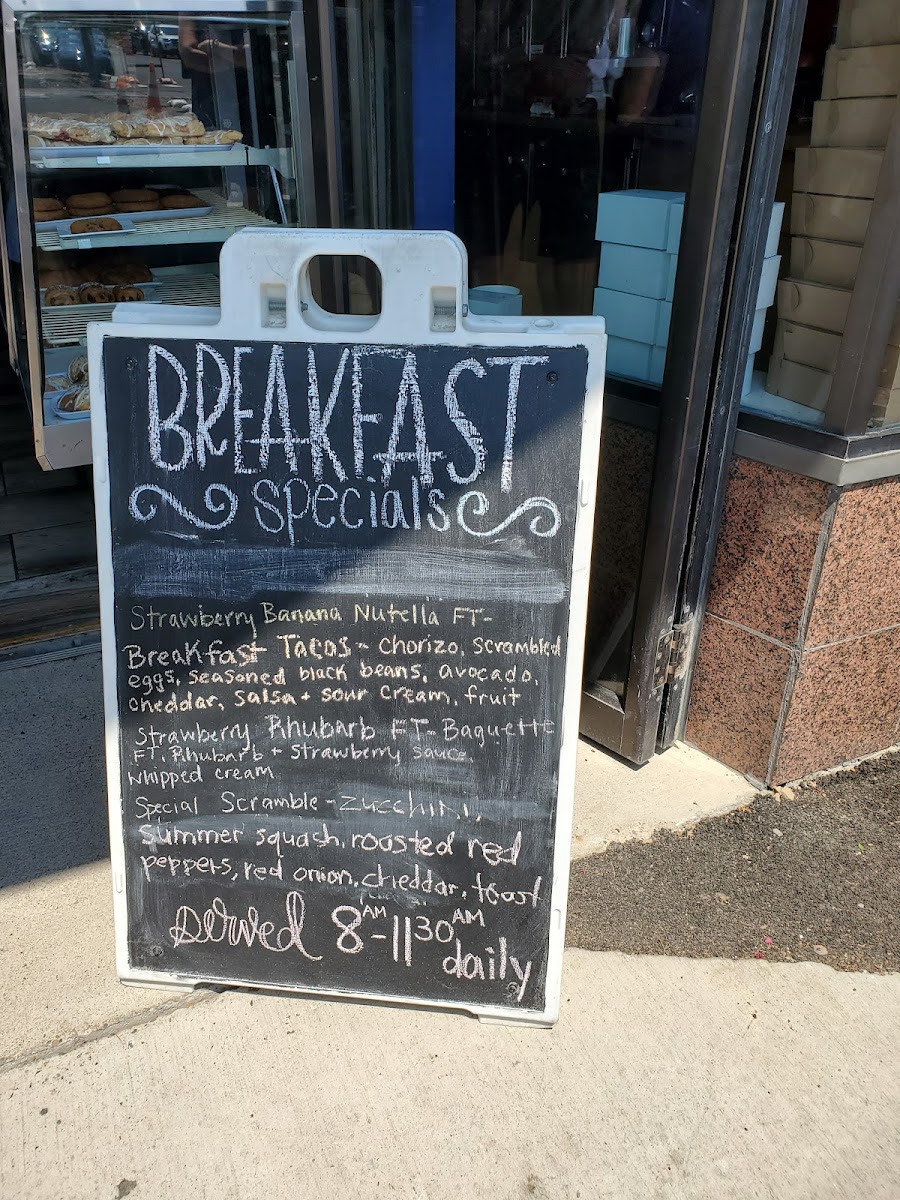 BREAKFAST
specials
Strawberry Banana Nutella FT-
Breakfast Tacos - chorizo, scrambled
eggs, seasoned black beans, avocado,
cheddar, salsa + sour cream, fruit
Strawberry Rhubarb FT- Baguette
FT, Rhubarb + Strawberry sauce,
whipped cream
Special Scramble - Zucchini,
summer squash, roasted red
peppers, red onion, cheddar, toast
served 8AM-1130AM
daily